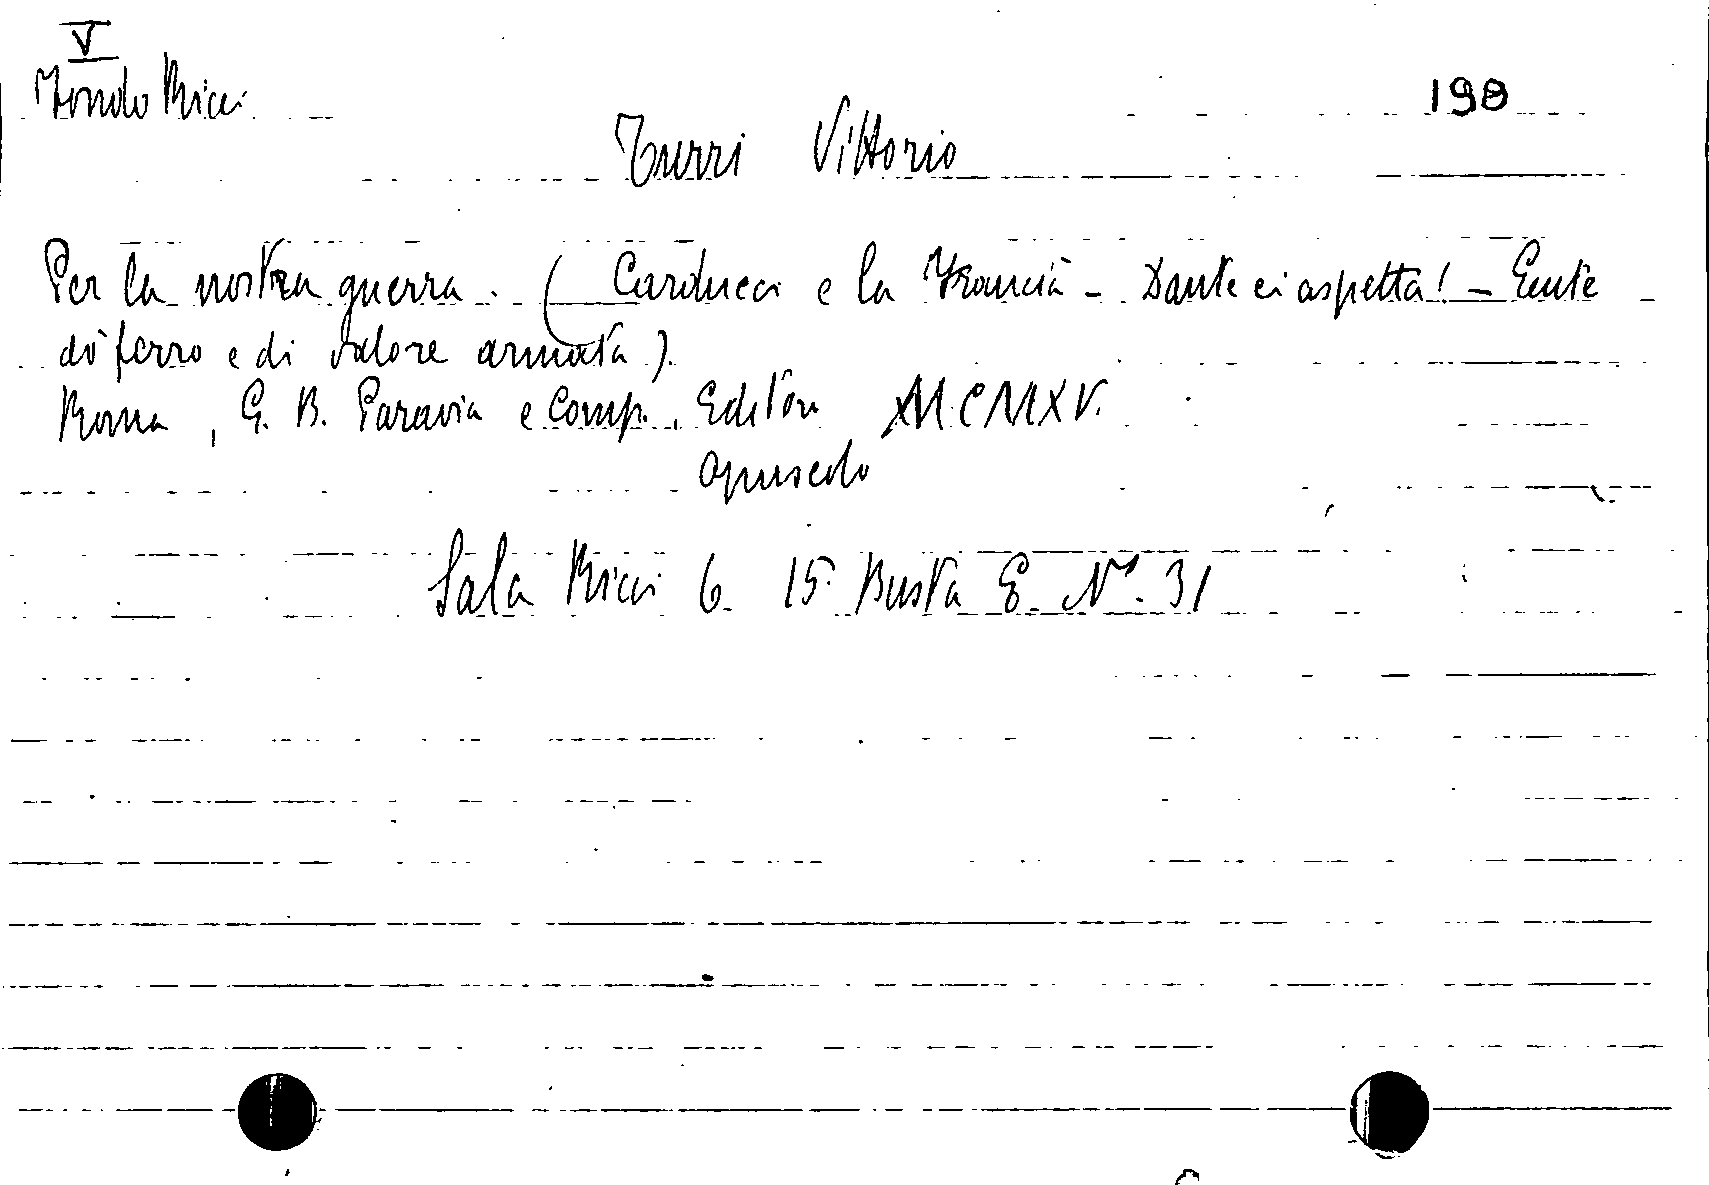 V
Fondo Ricci
198
Turri Vittorio
Per la nostra guerra. (Carducci e la Francia - Dante ci aspetta! - Gente
di ferro e di valore armata).
Roma, G. B. Paravia e Comp. Editori MCMXV.
opuscolo
Sala Ricci 6. 15. Busta E. N°. 31